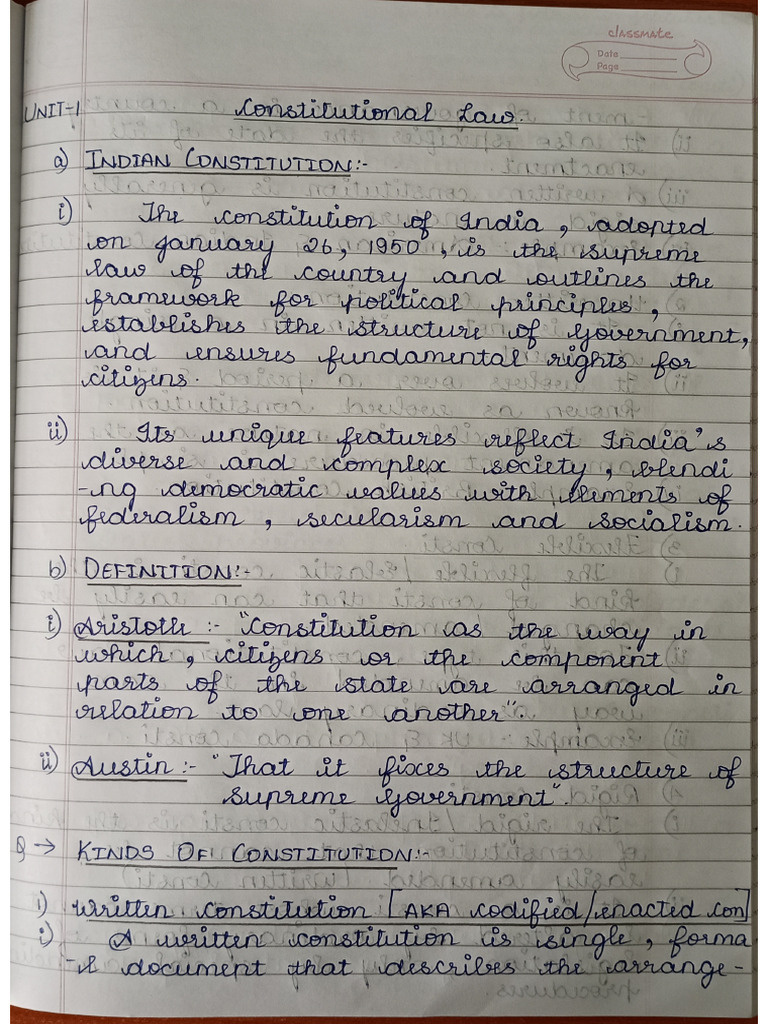 classmate
Date
Page
UNIT-1 Constitutional Law.
a) INDIAN CONSTITUTION:-
i) The constitution of India, adopted
on January 26, 1950, is the supreme
law of the country and outlines the
framework for political principles,
establishes the structure of Government,
and ensures fundamental rights for
citizens.
ii) Its unique features reflect India's
diverse and complex society, blendi
-ng democratic values with elements of
federalism, secularism and socialism.
b) DEFINITION:-
i) Aristotle :- "Constitution as the way in
which, citizens or the component
parts of the state are arranged in
relation to one another".
ii) Austin :- "That it fixes the structure of
supreme Government".
Q → KINDS OF CONSTITUTION:-
1) Written Constitution [AKA codified/enacted con]
i) A written constitution is single, forma
-l document that describes the arrange-